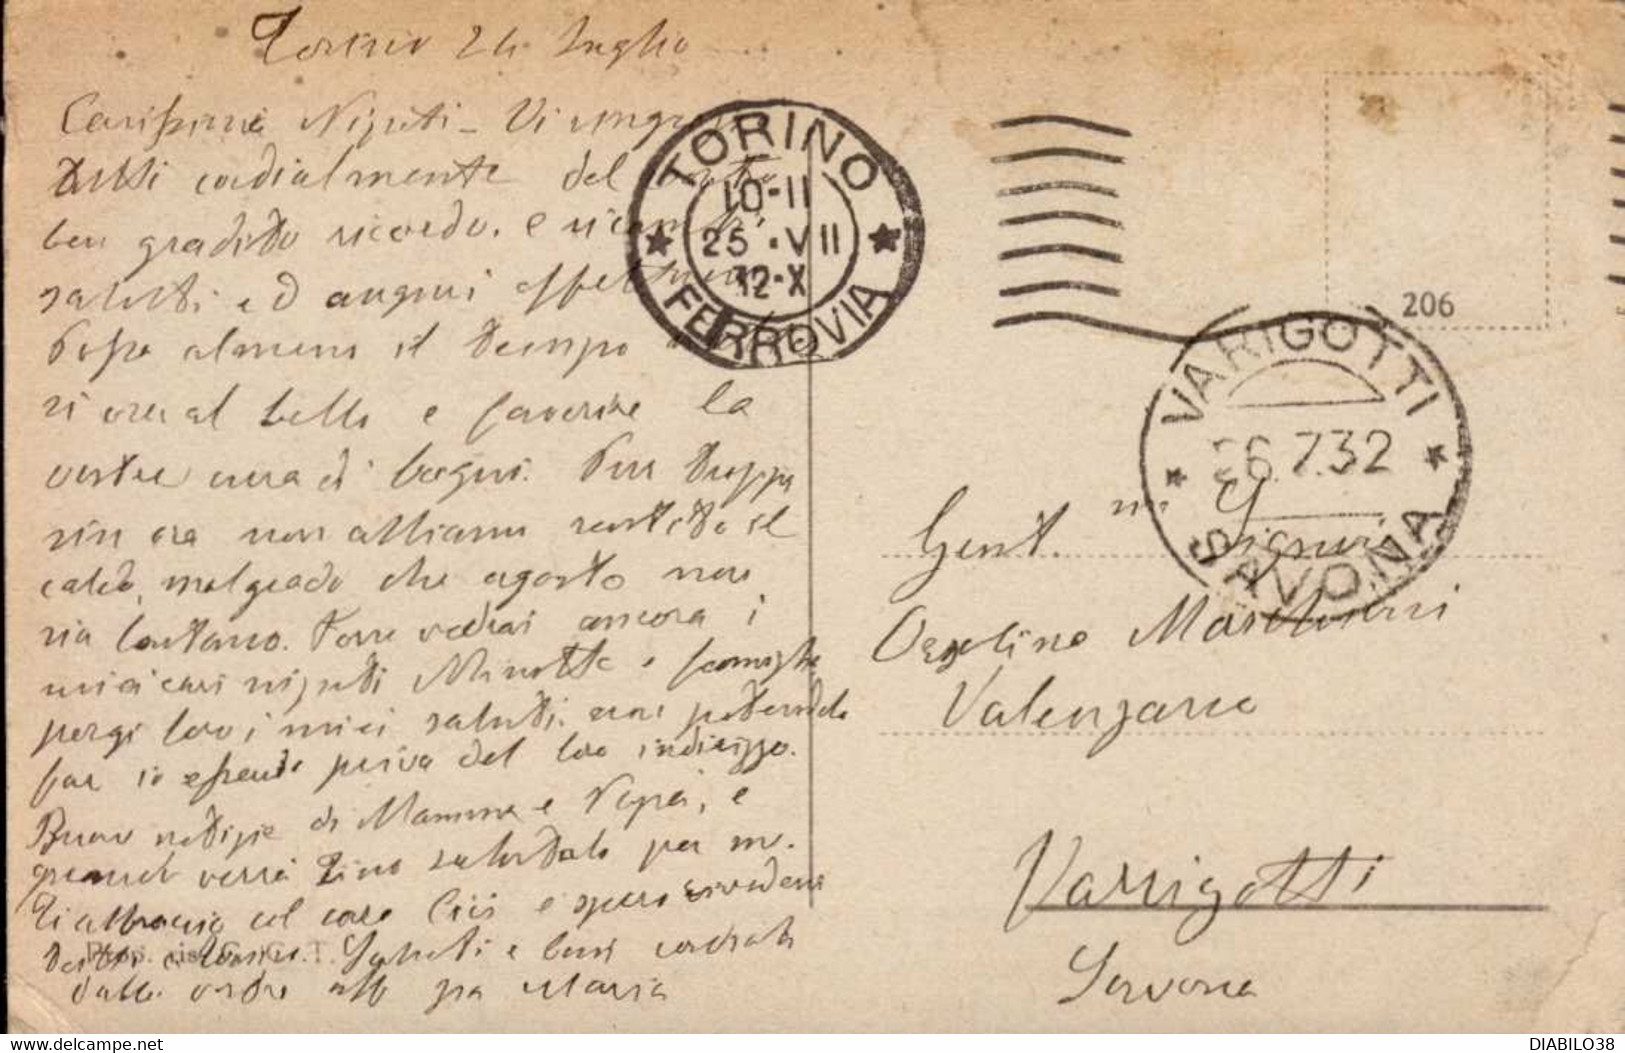 Torino 24 luglio
Carissimi Nipoti - Vi ringrazio
tutti cordialmente del vostro
ben gradito ricordo. e ricambio
saluti ed auguri affettuosi
Possa almeno il tempo
al bello e favorire la
vostra cura di bagni. Pur troppo
sin ora non abbiamo sentito il
caldo, malgrado che agosto non
sia lontano. Forse vedrai ancora i
miei cari nipoti Minotta e famiglia
porgi loro i miei saluti. non potendolo
far io essendo priva del loro indirizzo.
Buone notizie di Mamma e Papà, e
quando verrà Pino salutalo per me.
Ti abbraccio col caro Cici e spero rivedervi
tutti Saluti e baci cordiali
dalla vostra aff Maria
TORINO
10-11
25·VII
32-X
FERROVIA
206
VARIGOTTI
26.7.32
SAVONA
Gent. mi Signori
Valenzano
Varrigotti
Savona
DIABILO38
delcampe.net